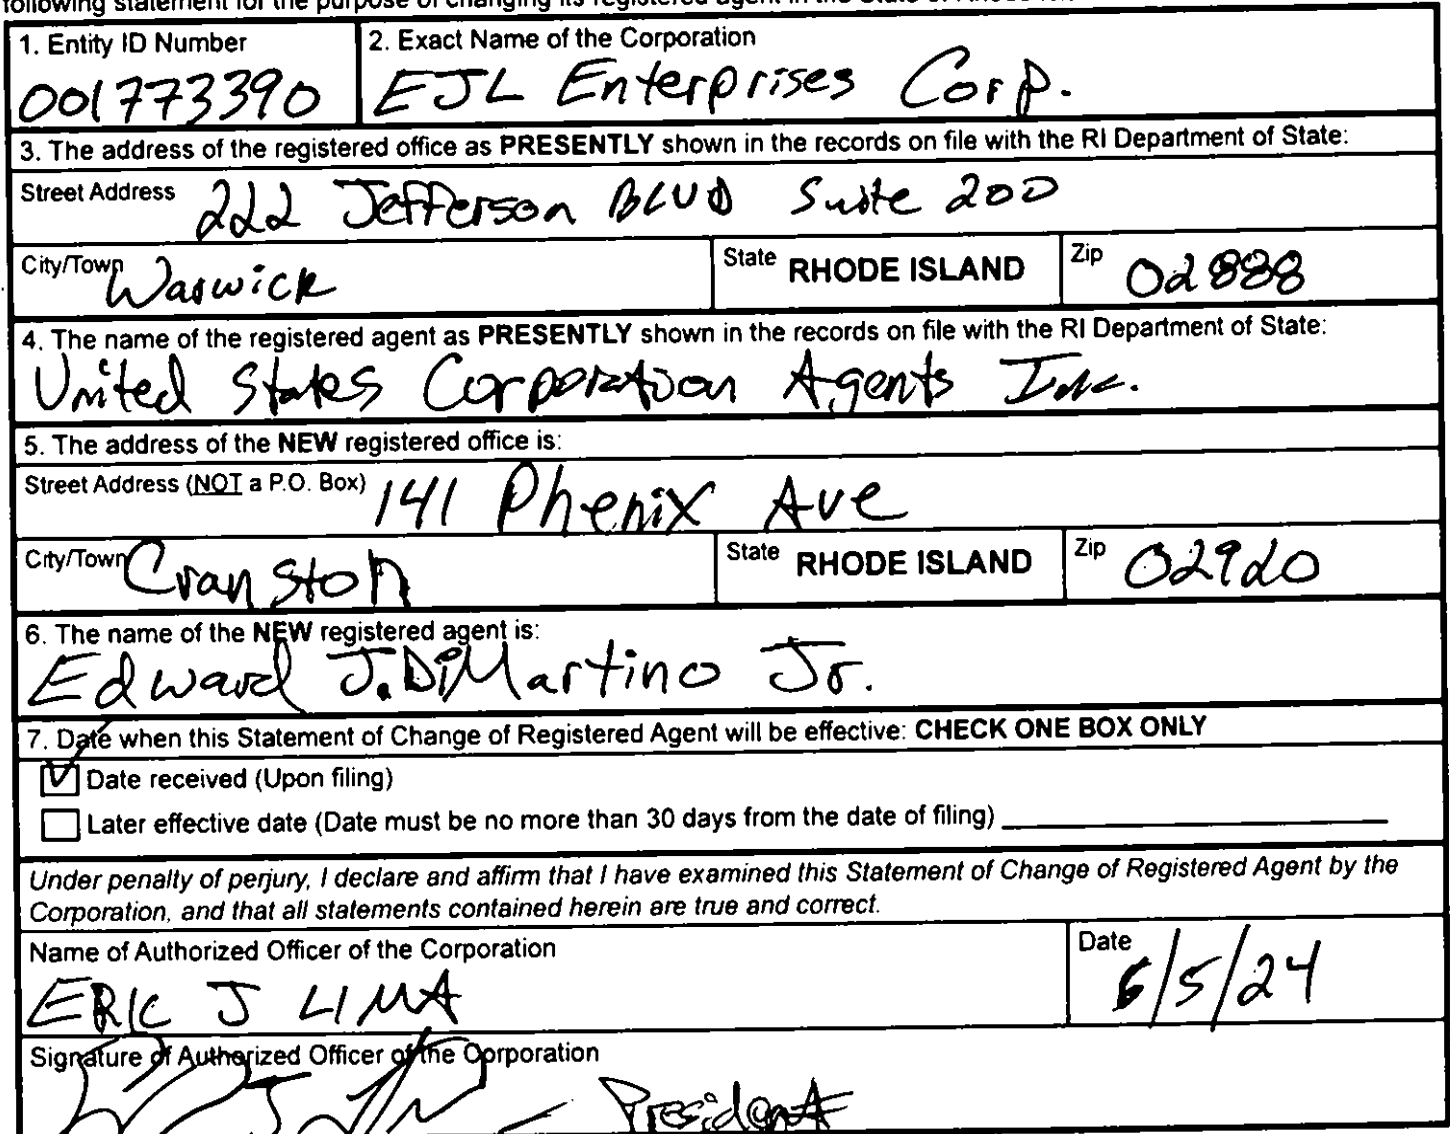 following statement for the purpose of changing its registered agent in the State of Rhode
1. Entity ID Number
001773390
2. Exact Name of the Corporation
EJL Enterprises Corp.
3. The address of the registered office as PRESENTLY shown in the records on file with the RI Department of State:
Street Address 222 Jefferson BLVD Suite 200
City/Town Warwick
State RHODE ISLAND
Zip 02888
4. The name of the registered agent as PRESENTLY shown in the records on file with the RI Department of State:
United States Corporation Agents Inc.
5. The address of the NEW registered office is:
Street Address (NOT a P.O. Box) 141 Phenix Ave
City/Town Cranston
State RHODE ISLAND
Zip 02920
6. The name of the NEW registered agent is:
Edward J. DiMartino Jr.
7. Date when this Statement of Change of Registered Agent will be effective: CHECK ONE BOX ONLY
Date received (Upon filing)
Later effective date (Date must be no more than 30 days from the date of filing)
Under penalty of perjury, I declare and affirm that I have examined this Statement of Change of Registered Agent by the
Corporation, and that all statements contained herein are true and correct.
Name of Authorized Officer of the Corporation
ERIC J LIMA
Date
6/5/24
Signature of Authorized Officer of the Corporation
President